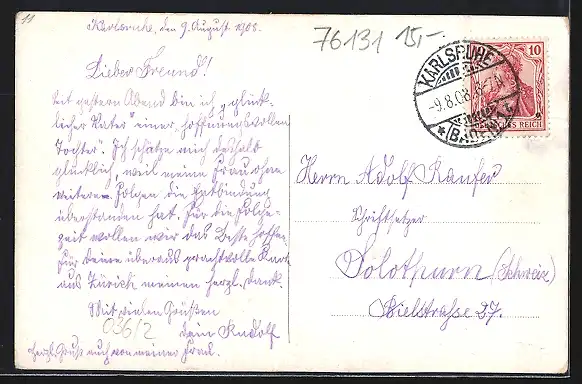 11
Karlsruhe, den 9. August 1908.
76131 15,-
Lieber Freund!
Seit gestern Abend bin ich "glück-
licher Vater" einer "hoffnungsvollen
Tochter". Ich schätze mich deshalb
glücklich, weil meine Frau ohne
weitere Folgen die Entbindung
überstanden hat. Für die Folge-
zeit wollen wir das Beste hoffen.
Für Deine überaus prachtvolle Karte
aus Zürich meinen herzl. Dank.
Mit vielen Grüßen
Dein Rudolf
036/2
Herzl. Gruß auch von meiner Frau.
KARLSRUHE
-9.8.08.
* (BADEN)
10
DEUTSCHES REICH
Herrn Adolf Kaufer
Schriftsetzer
Solothurn (Schweiz)
Bielstrasse 27.